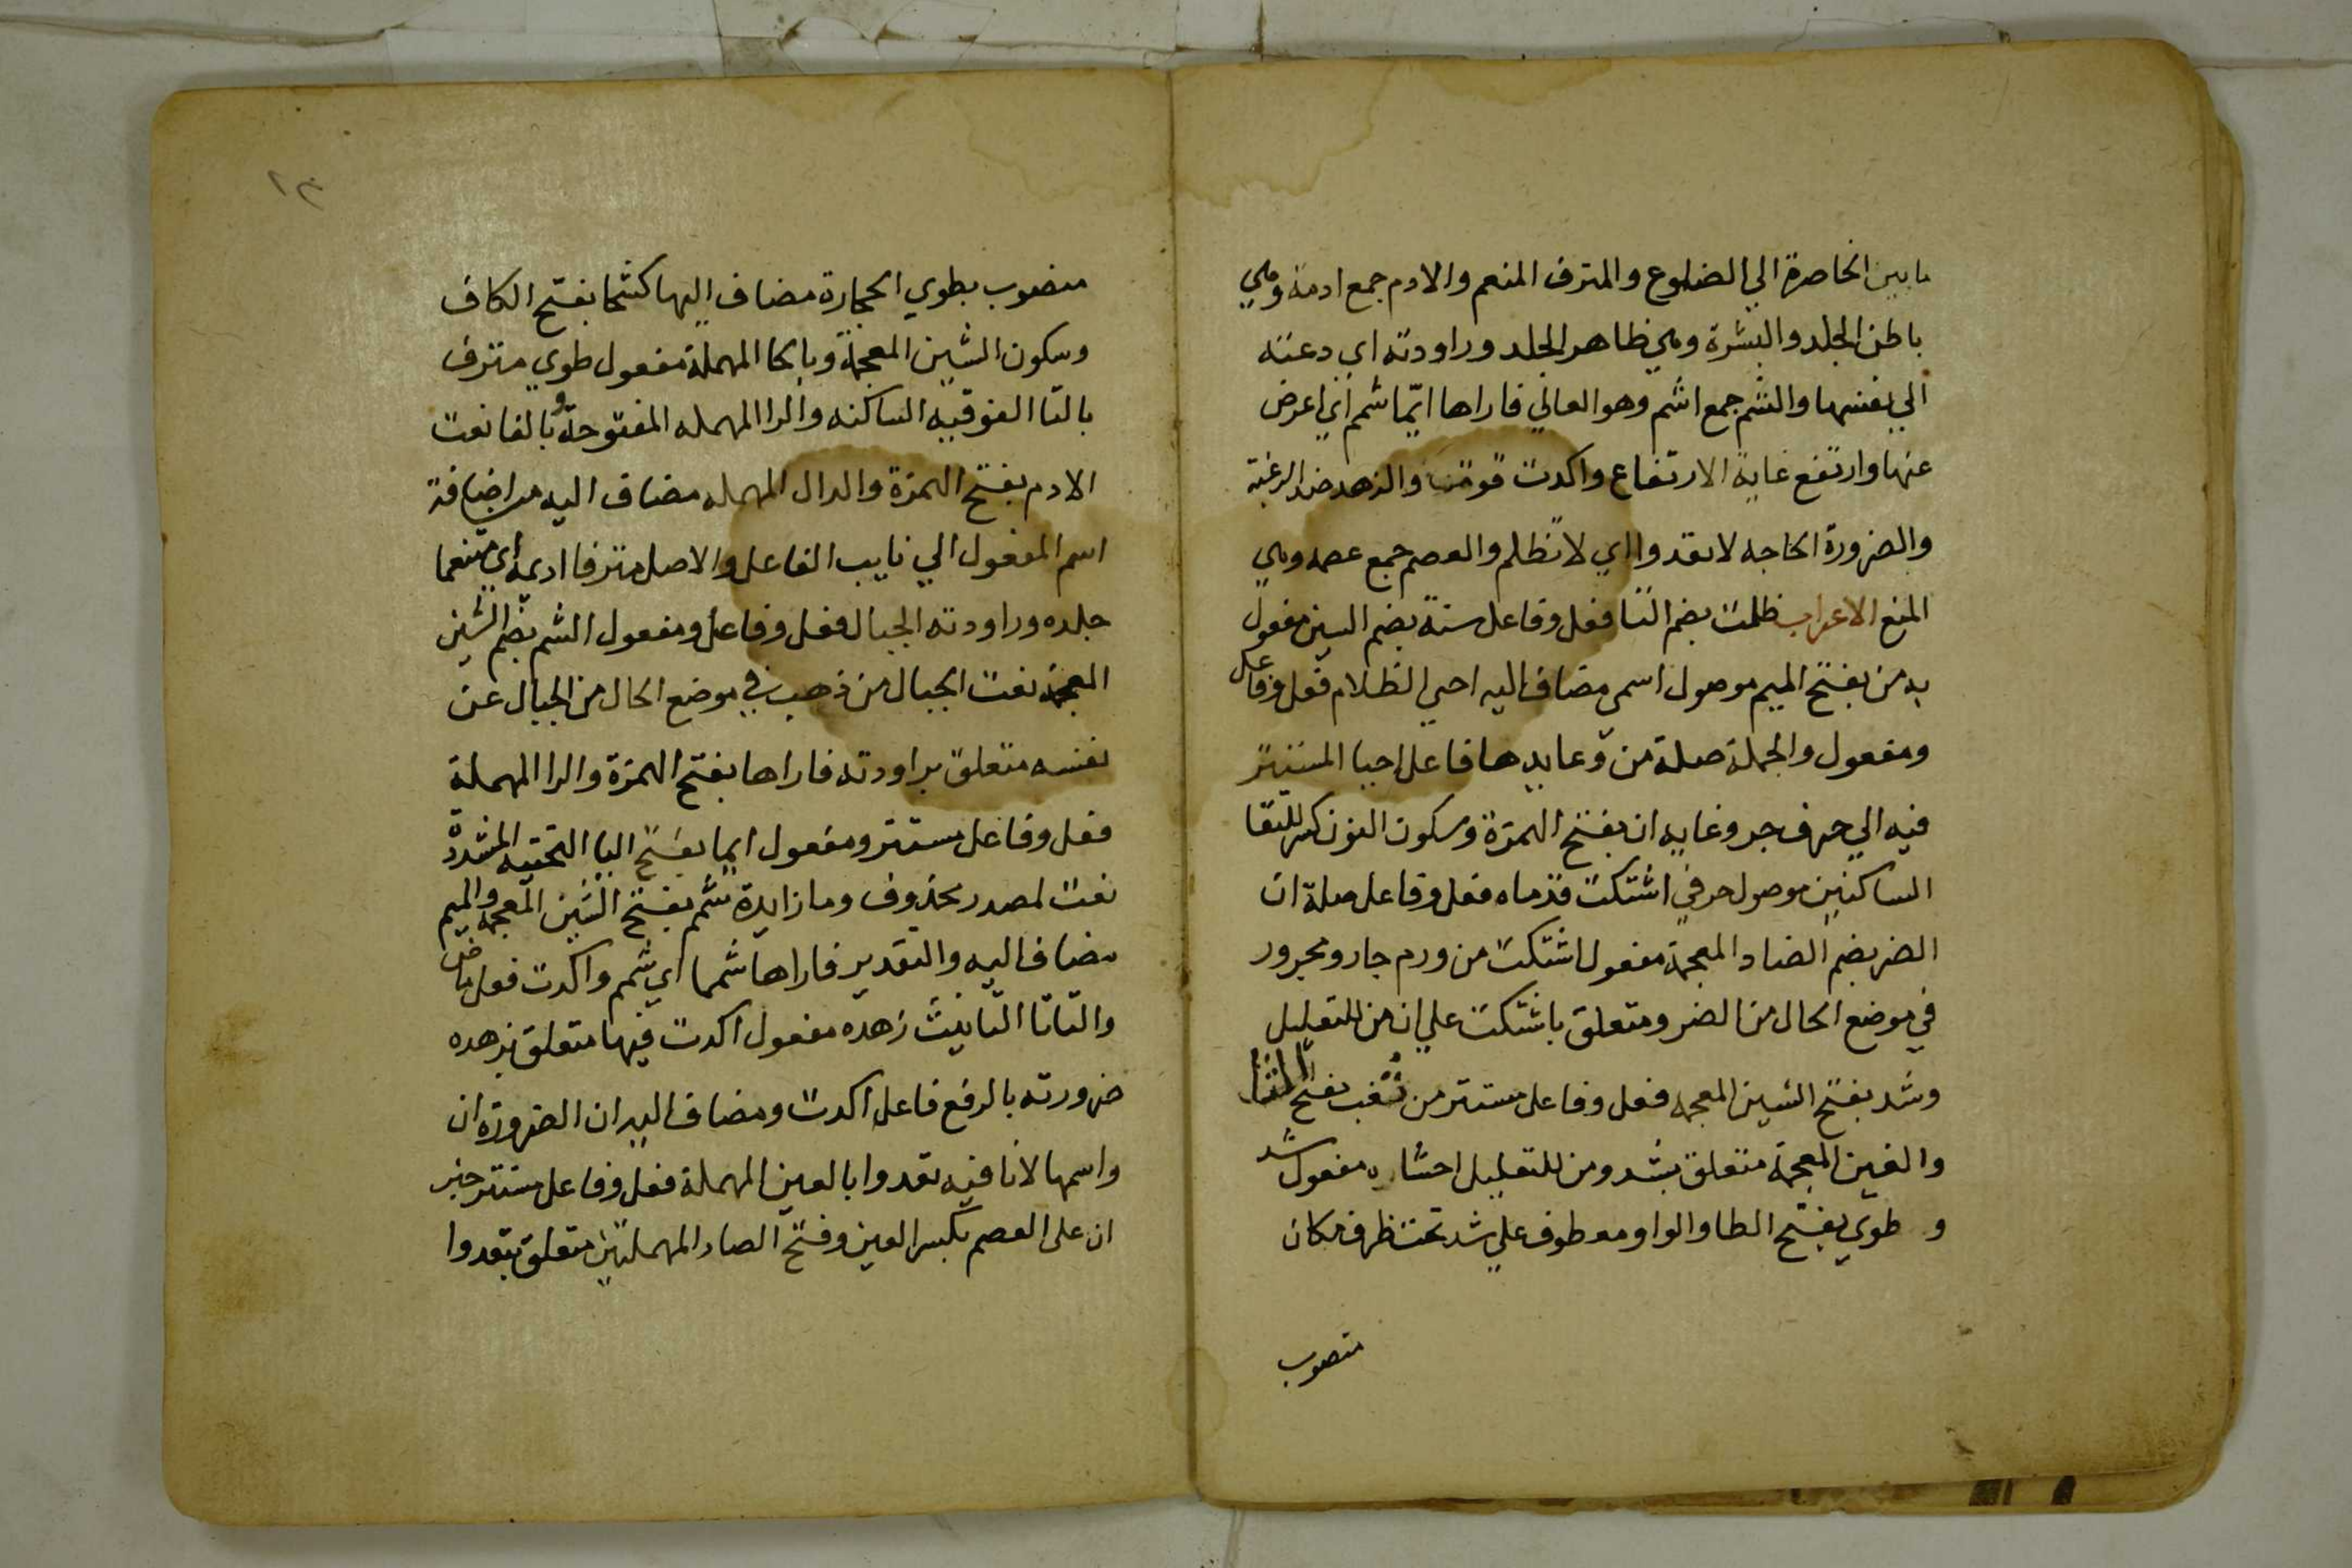 ما بين الخاصرة الي الضلوع والمترف المنعم والادم جمع ادمة وهي
باطن الجلد والبشرة وهي ظاهر الجلد وراودته اي دعته
الي نفسها والشم جمع اشم وهو العالي فاراها ايّما شمم اي اعرض
عنها وارتفع غاية الارتفاع واكدت قوت والزهد ضد الرغبة
والضرورة الحاجه لا تعدوا اي لا تظلم والعصم جمع عصمه وهي
المنع الاعراب ظلمت بضم التا فعل وفاعل سنة بضم السين مفعول
به من بفتح الميم موصول اسمي مضاف اليه احيي الظلام فعل وفاعل
ومفعول والجملة صلة من وعايدها فاعل احيا المستتر
فيه الي حرف جر وغايه ان بفتح الهمزة وسكون النون كسر للتقا
الساكنين موصول حرفي اشتكت قدماه فعل وفاعل صلة ان
الضر بضم الضاد المعجمة مفعول اشتكت من ورم جار ومجرور
في موضع الحال من الضر ومتعلق باشتكت علي ان من للتعليل
وشد بفتح الشين المعجمه فعل وفاعل مستتر من سغب بفتح
والغين المعجمة متعلق بشد ومن للتعليل احشاءه مفعول شد
و طوي بفتح الطا والواو معطوف علي شد تحت ظرف مكان
منصوب
١٣
منصوب بطوي الحجارة مضاف اليها كشحا بفتح الكاف
وسكون الشين المعجمة وبالحا المهملة مفعول طوي مترف
بالتا الفوقيه الساكنه والرا المهمله المفتوحة وبالفا نعت
الادم بفتح الهمزة والدال المهمله مضاف اليه من اضافة
اسم المفعول الي نايب الفاعل والاصل مترفا اديمه اي متنعما
جلده وراودته الجبال فعل وفاعل ومفعول الشم بضم الشين
المعجمة نعت الجبال من ذهب في موضع الحال من الجبال عن
نفسه متعلق براودته فاراها بفتح الهمزة والرا المهملة
فعل وفاعل مستتر ومفعول ايما بفتح اليا التحتيه المشددة
نعت لمصدر محذوف وما زايدة شمم بفتح الشين المعجمه والميم
مضاف اليه والتقدير فاراها شمما اي شمم واكدت فعل ماض
والتا تا التانيث زهده مفعول اكدت فيها متعلق بزهده
ضرورته بالرفع فاعل اكدت ومضاف اليه ان الضرورة ان
واسمها لا نافيه تعدوا بالعين المهملة فعل وفاعل مستتر خبر
ان على العصم بكسر العين وفتح الصاد المهملتين متعلق بتعدوا